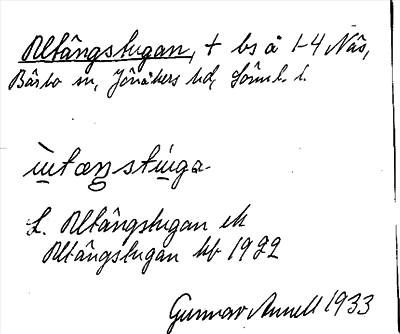 Utängstugan, + bs å 1-4 Näs,
Bärbo sn, Jönåkers hd, Södml. l.
ùtæŋstùga
L. Utängstugan ek
Utängstugan kb 1922
Gunnar Annell 1933